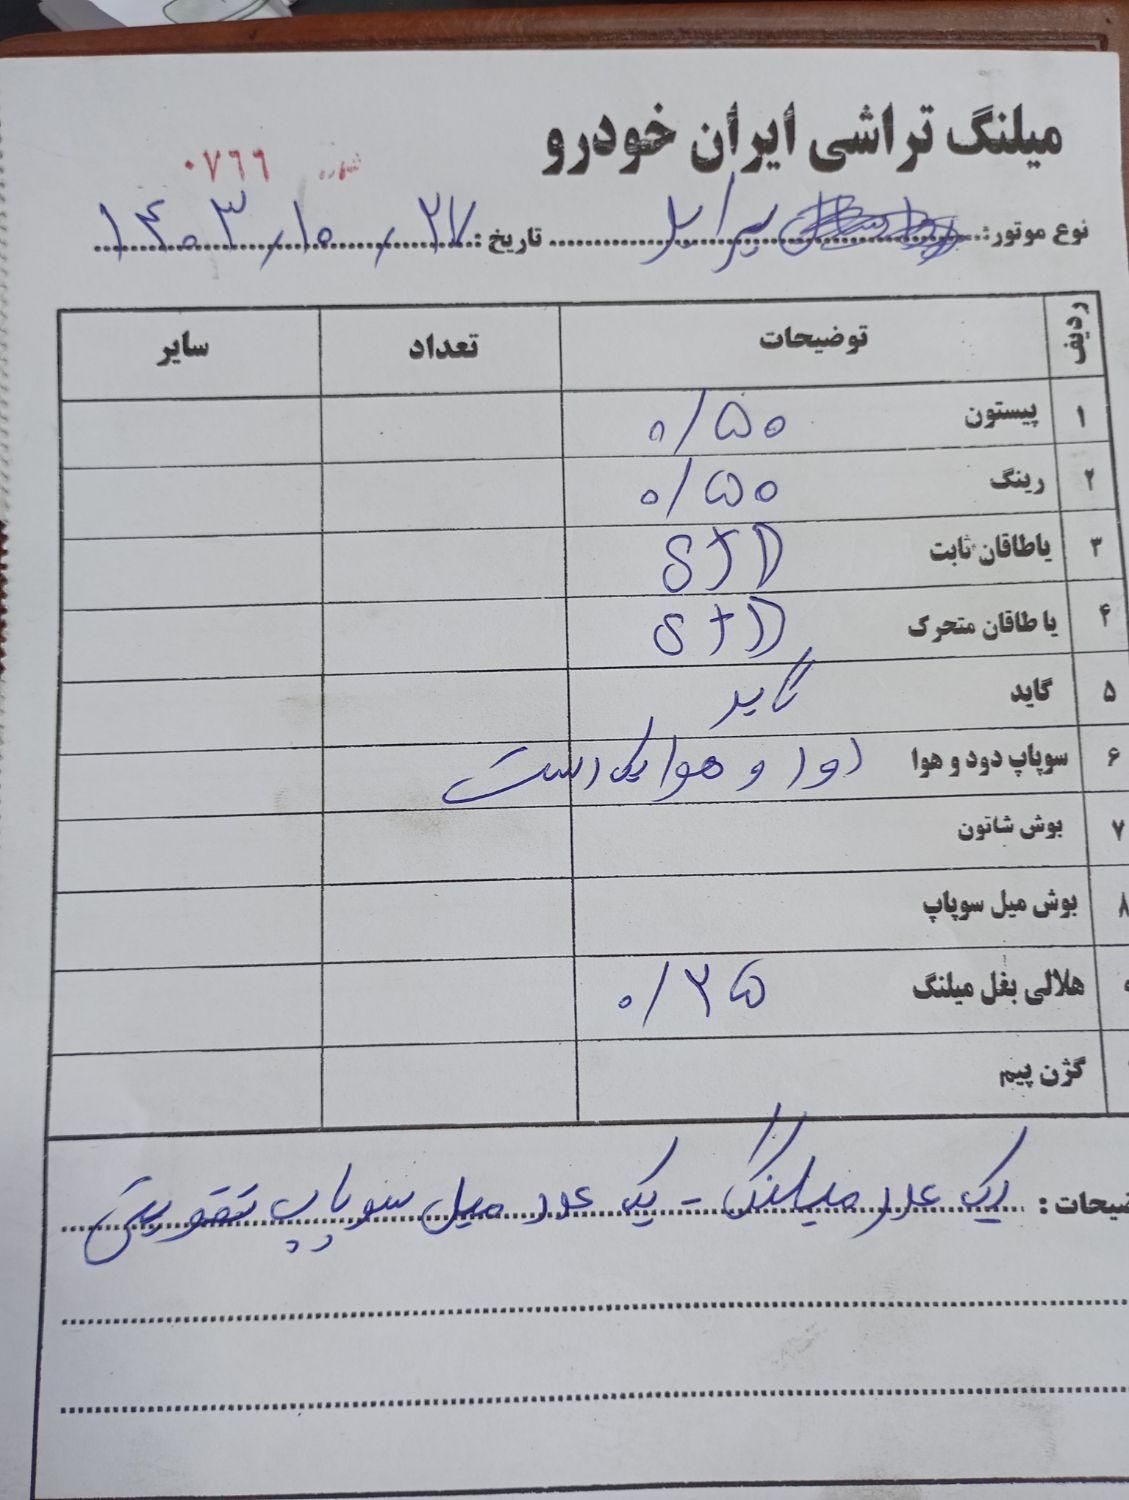 میلنگ تراشی ایران خودرو
شماره ۰۷۶۶
نوع موتور: پراید تاریخ: ۱۴۰۳/۱۰/۲۷
ردیف توضیحات تعداد سایر
۱ پیستون ۰/۵۰
۲ رینگ ۰/۵۰
۳ یاطاقان ثابت STD
۴ یا طاقان متحرک STD
۵ گاید گاید
۶ سوپاپ دود و هوا دود و هوا یکدست
۷ بوش شاتون
۸ بوش میل سوپاپ
هلالی بغل میلنگ ۰/۲۵
گژن پیم
ضیحات: یک عدد میلنگ - یک عدد میل سوپاپ تقویتی